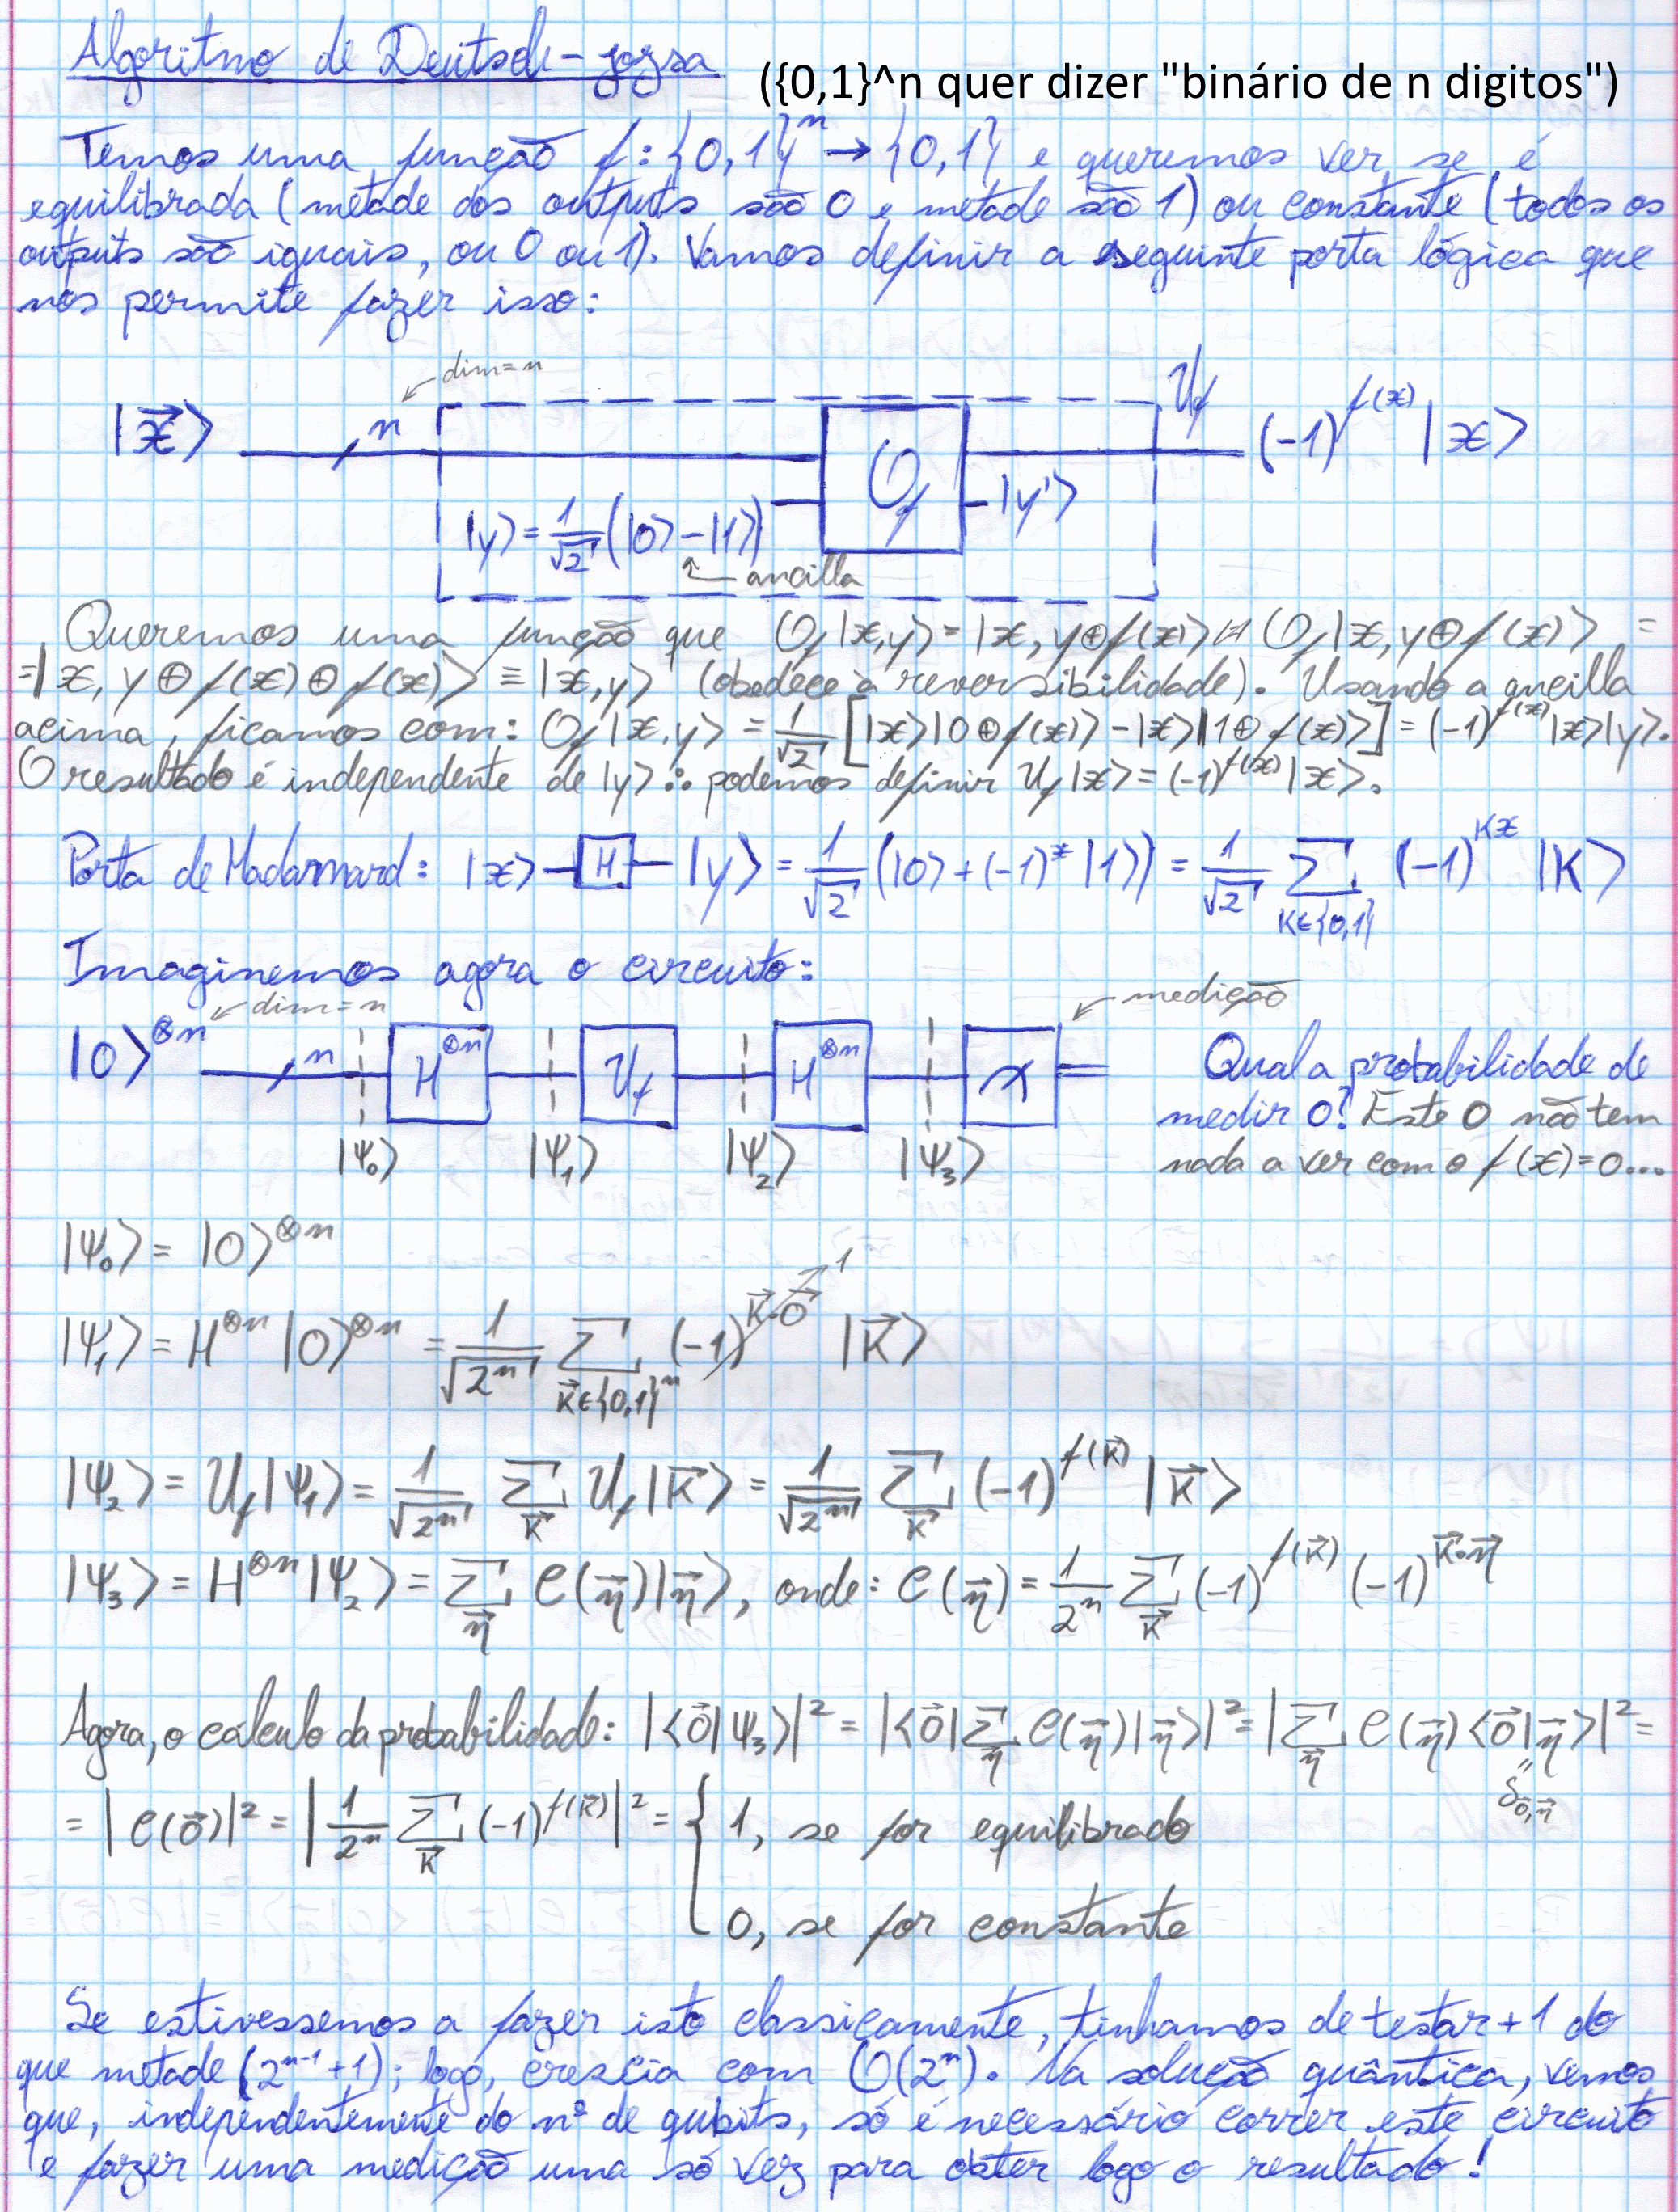 Algoritmo de Deutsch-jozsa ({0,1}^n quer dizer "binário de n digitos")
Temos uma função f: {0,1}ⁿ → {0,1} e queremos ver se é
equilibrada (metade dos outputs são 0 e metade são 1) ou constante (todos os
outputs são iguais, ou 0 ou 1). Vamos definir a seguinte porta lógica que
nos permite fazer isso:
dim=n
|x⃗⟩ n O_f U_f (-1)^f(x) |x⟩
|y⟩ = 1/√2 (|0⟩-|1⟩) |y'⟩
ancilla
Queremos uma função que O_f|x,y⟩ = |x, y⊕f(x)⟩ ↦ O_f|x, y⊕f(x)⟩ =
=|x, y⊕f(x)⊕f(x)⟩ ≡ |x,y⟩ (obedece à reversibilidade). Usando a ancilla
acima, ficamos com: O_f|x,y⟩ = 1/√2 [|x⟩|0⊕f(x)⟩ - |x⟩|1⊕f(x)⟩] = (-1)^f(x) |x⟩|y⟩.
O resultado é independente de |y⟩ ∴ podemos definir U_f|x⟩ = (-1)^f(x) |x⟩.
Porta de Hadarmard: |x⟩ H |y⟩ = 1/√2 (|0⟩ + (-1)^x |1⟩) = 1/√2 Σ_K∈{0,1} (-1)^Kx |K⟩
Imaginemos agora o circuito:
dim=n medição
|0⟩^⊗n n H^⊗n U_f H^⊗n Qual a probabilidade de
medir 0? Este 0 não tem
|Ψ₀⟩ |Ψ₁⟩ |Ψ₂⟩ |Ψ₃⟩ nada a ver com o f(x)=0...
|Ψ₀⟩ = |0⟩^⊗n
|Ψ₁⟩ = H^⊗n |0⟩^⊗n = 1/√2ⁿ Σ_K⃗∈{0,1}ⁿ (-1)^K⃗·0⃗ → 1 |K⃗⟩
|Ψ₂⟩ = U_f|Ψ₁⟩ = 1/√2ⁿ Σ_K⃗ U_f|K⃗⟩ = 1/√2ⁿ Σ_K⃗ (-1)^f(K⃗) |K⃗⟩
|Ψ₃⟩ = H^⊗n|Ψ₂⟩ = Σ_η⃗ C(η⃗)|η⃗⟩, onde: C(η⃗) = 1/2ⁿ Σ_K⃗ (-1)^f(K⃗) (-1)^K⃗·η⃗
Agora, o cálculo da probabilidade: |⟨0⃗|Ψ₃⟩|² = |⟨0⃗|Σ_η⃗ C(η⃗)|η⃗⟩|² = |Σ_η⃗ C(η⃗)⟨0⃗|η⃗⟩|² =
" δ_0⃗,η⃗
= |C(0⃗)|² = |1/2ⁿ Σ_K⃗ (-1)^f(K⃗)|² = { 1, se for equilibrado
0, se for constante
Se estivessemos a fazer isto classicamente, tinhamos de testar +1 do
que metade (2ⁿ⁻¹+1); logo, crescia com O(2ⁿ). Na solução quântica, vemos
que, independentemente do nº de qubits, só é necessário correr este circuito
e fazer uma medição uma só vez para obter logo o resultado!